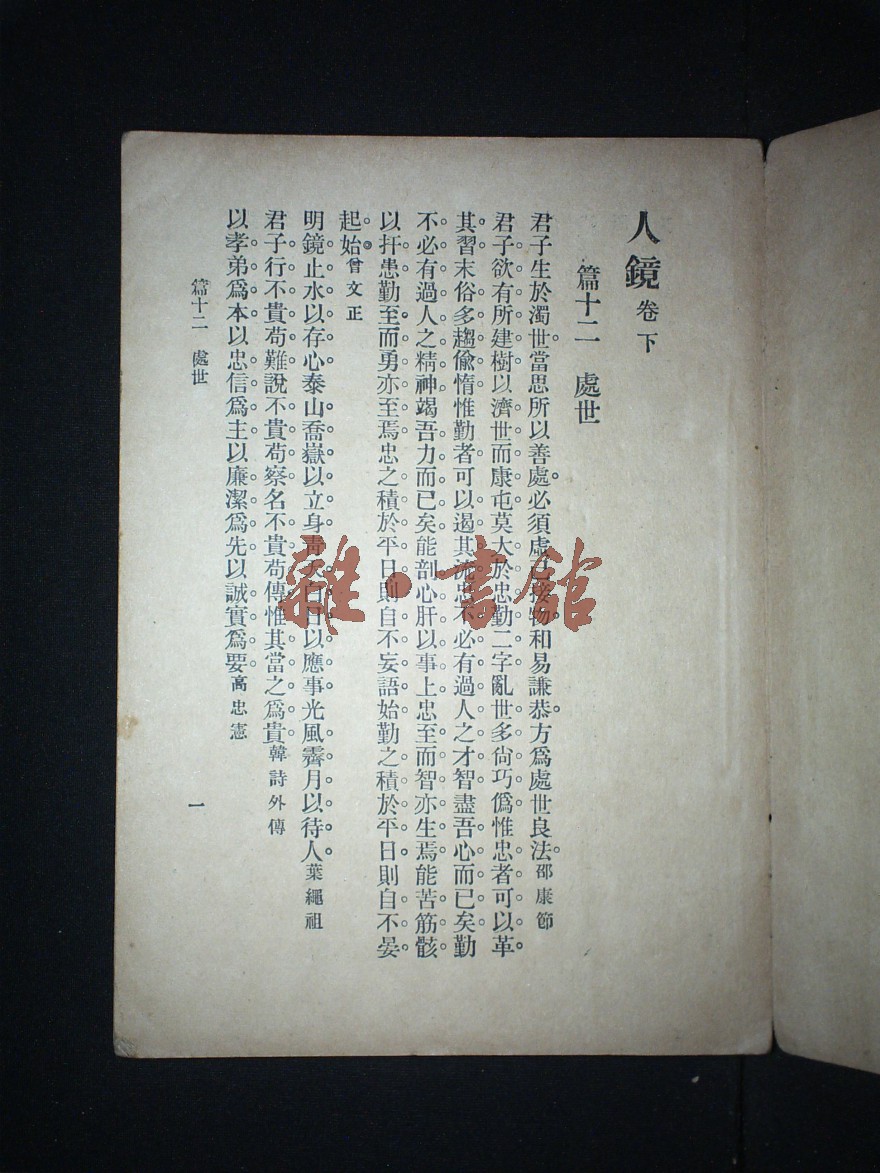 人鏡 卷下
篇十二 處世
君子生於濁世當思所以善處必須虛己接物和易謙恭方爲處世良法邵康節
君子欲有所建樹以濟世而康屯莫大於忠勤二字亂世多尙巧僞惟忠者可以革
其習末俗多趨偸惰惟勤者可以遏其流忠不必有過人之才智盡吾心而已矣勤
不必有過人之精神竭吾力而已矣能剖心肝以事上忠至而智亦生焉能苦筋骸
以扞患勤至而勇亦至焉忠之積於平日則自不妄語始勤之積於平日則自不晏
起始曾文正
明鏡止水以存心泰山喬嶽以立身靑天白日以應事光風霽月以待人葉繩祖
君子行不貴苟難說不貴苟察名不貴苟傳惟其當之爲貴韓詩外傳
以孝弟爲本以忠信爲主以廉潔爲先以誠實爲要高忠憲
篇十二 處世
一
雜·書館